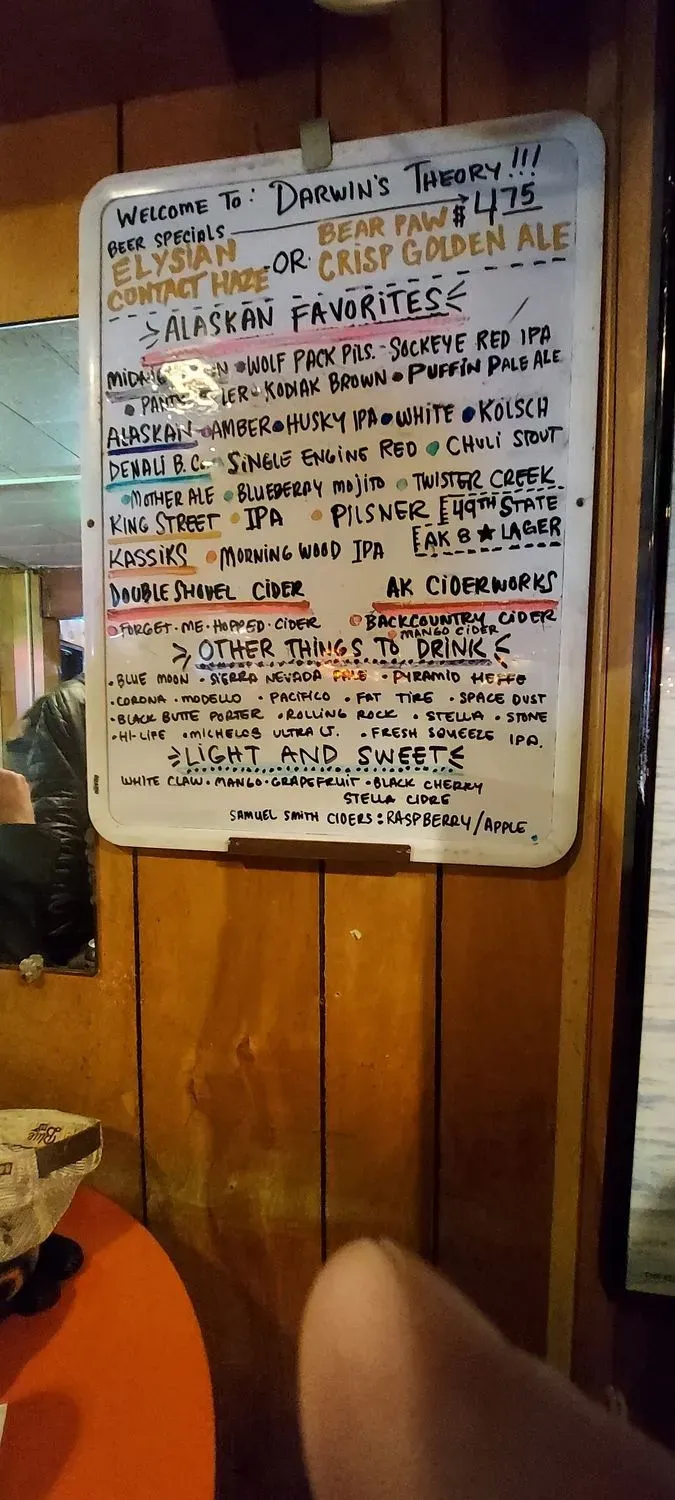 WELCOME TO: DARWIN'S THEORY!!!
BEER SPECIALS $4.75
ELYSIAN CONTACT HAZE -OR- BEAR PAW CRISP GOLDEN ALE
ALASKAN FAVORITES
•WOLF PACK PILS. - SOCKEYE RED IPA
• KODIAK BROWN • PUFFIN PALE ALE
ALASKAN • AMBER • HUSKY IPA • WHITE • KÖLSCH
DENALI B. Co • SINGLE ENGINE RED • CHULI STOUT
•MOTHER ALE • BLUEBERRY MOJITO • TWISTER CREEK
KING STREET • IPA • PILSNER
49TH STATE
AK 8 ★ LAGER
KASSIKS • MORNING WOOD IPA
DOUBLE SHOVEL CIDER
•FORGET•ME•HOPPED•CIDER
AK CIDERWORKS
•BACKCOUNTRY CIDER
•MANGO CIDER
OTHER THINGS TO DRINK
•BLUE MOON •SIERRA NEVADA PALE •PYRAMID HEFFE
•CORONA •MODELLO •PACIFICO •FAT TIRE •SPACE DUST
•BLACK BUTTE PORTER •ROLLING ROCK •STELLA •STONE
•HI-LIFE •MICHELOB ULTRA LT. •FRESH SQUEEZE IPA.
LIGHT AND SWEET
WHITE CLAW•MANGO•GRAPEFRUIT•BLACK CHERRY
STELLA CIDRE
SAMUEL SMITH CIDERS: RASPBERRY/APPLE